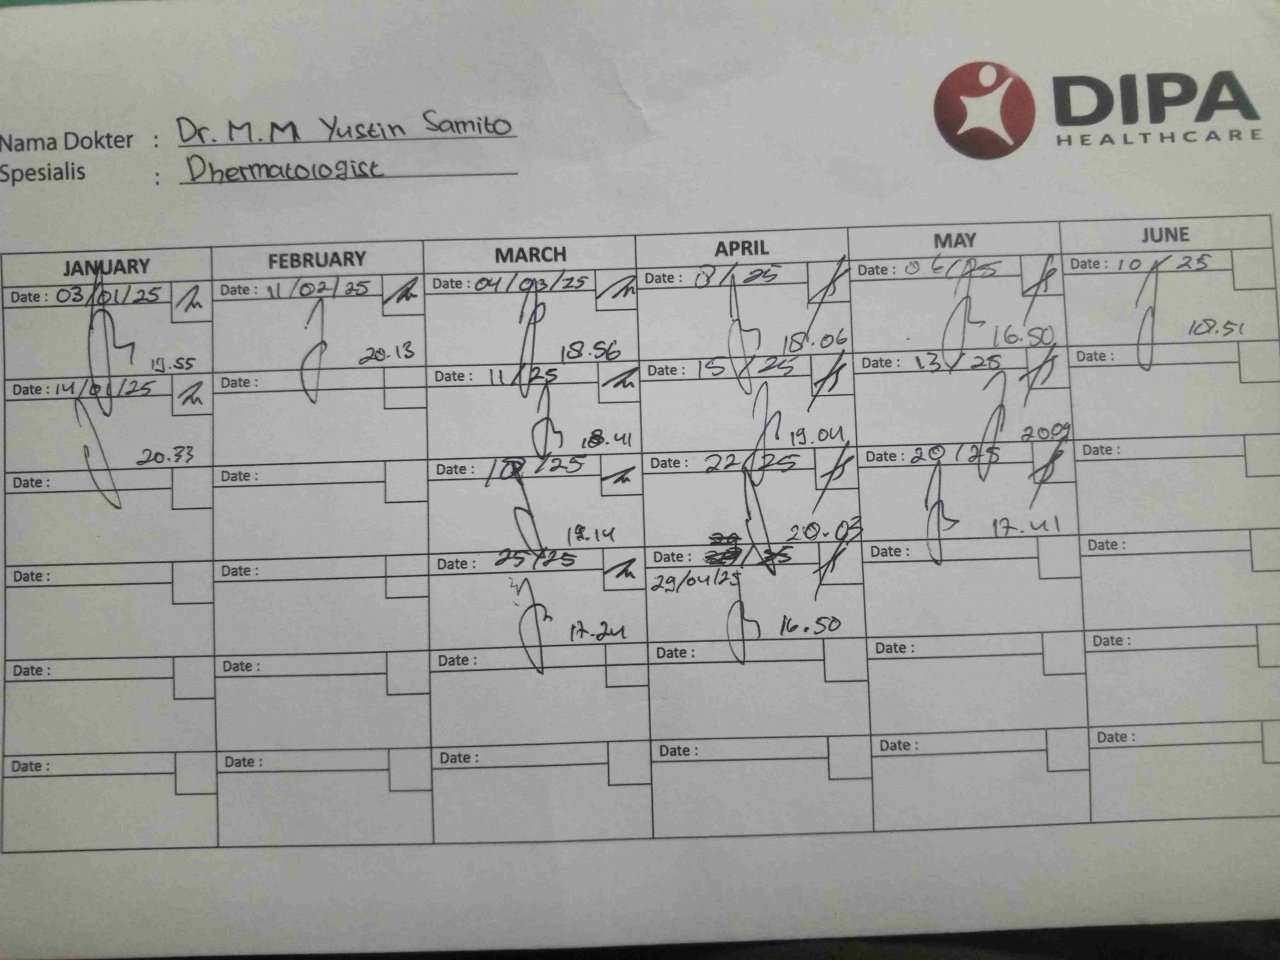 DIPA
HEALTHCARE
Nama Dokter : Dr. M.M Yustin Samito
Spesialis : Dhermatologist
JANUARY FEBRUARY MARCH APRIL MAY JUNE
Date : 03/01/25 Date : 11/02/25 Date : 04/03/25 Date : 8/25 Date : 06/25 Date : 10/25
19.55 20.13 18.56 18.06 16.50 18.51
Date : 14/01/25 Date : Date : 11/25 Date : 15/25 Date : 13/25 Date :
20.33 18.41 19.04 20.09
Date : Date : Date : 18/25 Date : 22/25 Date : 20/25 Date :
20.03 17.41
Date : Date : Date : 25/25 Date : Date : Date :
29/04/25
17.24 16.50
Date : Date : Date : Date : Date : Date :
Date : Date : Date : Date : Date : Date :